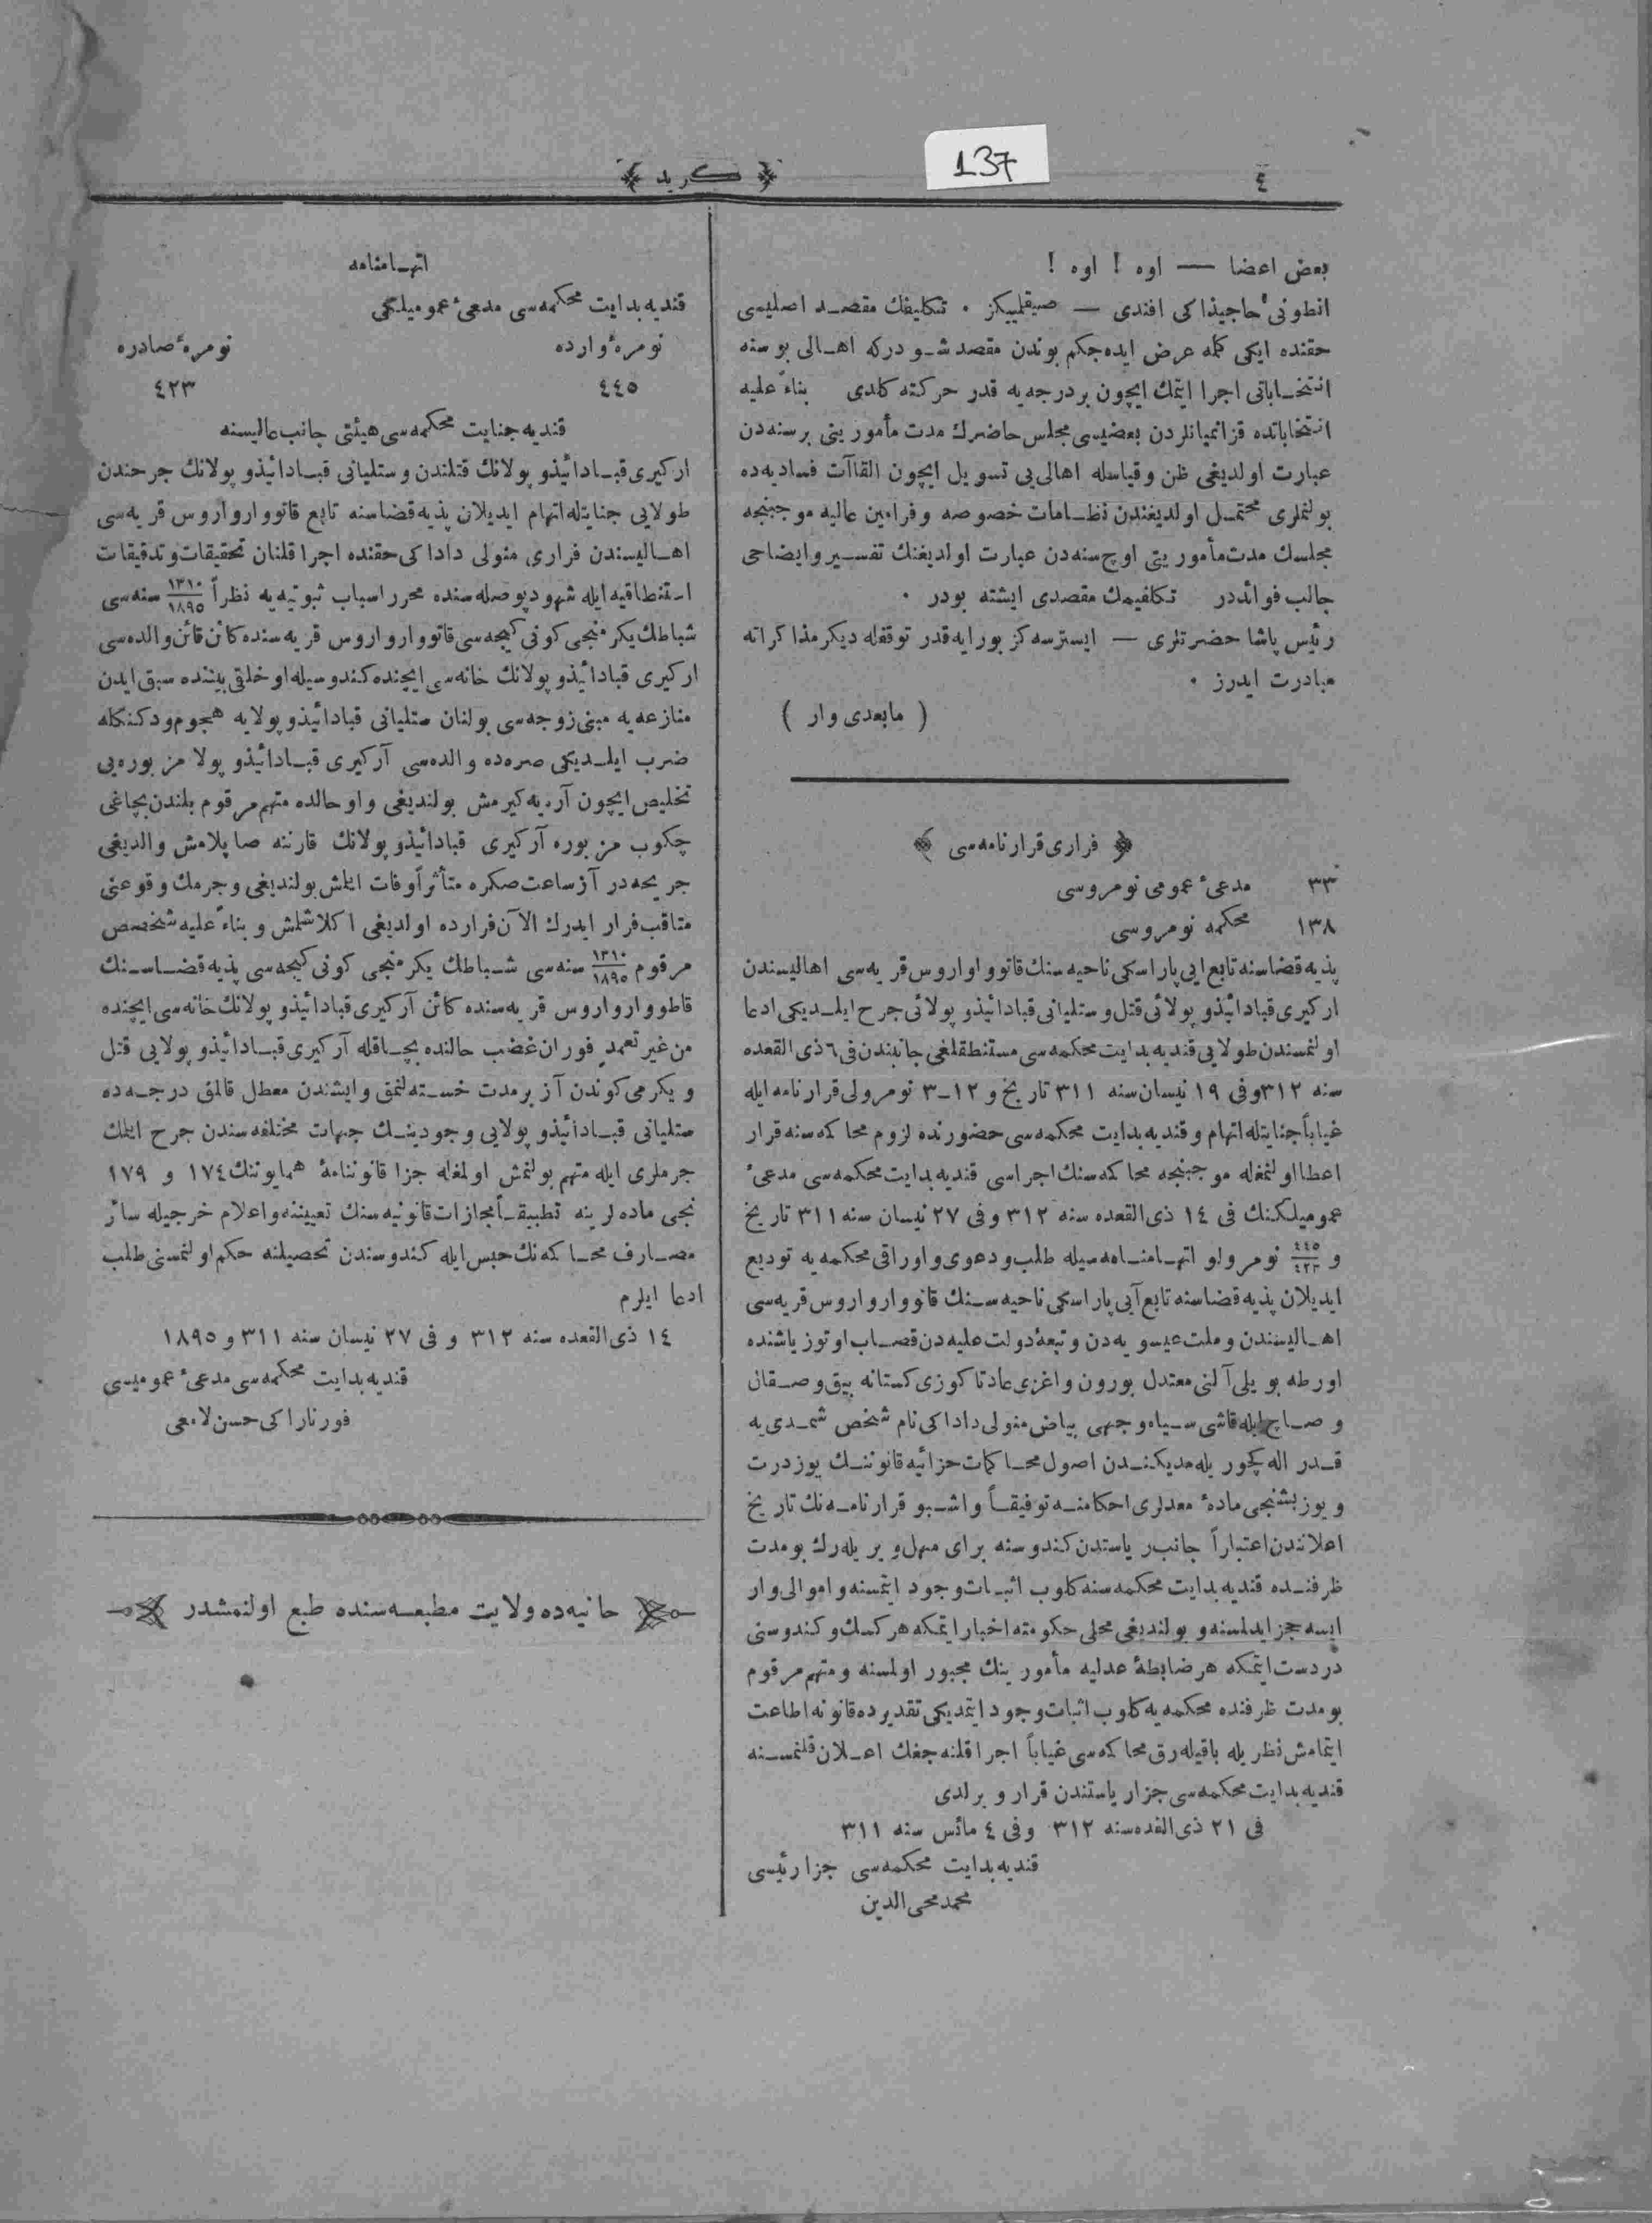 ٤
137
﴿ كريد ﴾
بعض اعضا — اوه ! اوه !
انطونى حاجيذاكى افندى — صيقلميكز . تكليفك مقصد اصليسى
حقنده ايكى كله عرض ايده‌جكم بوندن مقصد شودركه اهالى بو سنه
انتخاباتى اجرا ايتمك ايچون بر درجه‌يه قدر حركته كلدى بناءً عليه
انتخاباتده قزانميانلردن بعضيسى مجلس حاضرك مدت مأموريتى بر سنه‌دن
عبارت اولديغى ظن و قياسله اهالى‌يى تسويل ايچون القاآت فساديه‌ده
بولنملرى محتمل اولديغندن نظامات خصوصه و فرامين عاليه موجبنجه
مجلسك مدت مأموريتى اوچ سنه‌دن عبارت اولديغنك تفسير و ايضاحى
جالب فوائددر تكلفيمك مقصدى ايشته بودر .
رئيس پاشا حضرتلرى — ايسترسه‌كز بورايه قدر توقفله ديكر مذاكراته
مبادرت ايدرز .
( مابعدى وار )
﴿ فرارى قرارنامه‌سى ﴾
٣٣ مدعئ عمومى نومروسى
١٣٨ محكمه نومروسى
پذيه قضاسنه تابع ايى پاراسكى ناحيه‌سنك قاتو واواروس قريه‌سى اهاليسندن
اركيرى قبادائيذو پولائى قتل و ستليانى قبادائيذو پولائى جرح ايلديكى ادعا
اولنمسندن طولايى قنديه بدايت محكمه‌سى مستنطقلغى جانبندن فى ٦ ذى القعده
سنه ٣١٢ و فى ١٩ نيسان سنه ٣١١ تاريخ و ١٢-٣ نومرولى قرارنامه ايله
غياباً جنايتله اتهام و قنديه بدايت محكمه‌سى حضورنده لزوم محاكمه‌سنه قرار
اعطا اولنمغله موجبنجه محاكمه‌سنك اجراسى قنديه بدايت محكمه‌سى مدعئ
عموميلكنك فى ١٤ ذى القعده سنه ٣١٢ و فى ٢٧ نيسان سنه ٣١١ تاريخ
و ٤٤٥/٤٢٣ نومرولو اتهامنامه‌سيله طلب و دعوى و اوراقى محكمه‌يه توديع
ايديلان پذيه قضاسنه تابع آيى پاراسكى ناحيه‌سنك قانو وارواروس قريه‌سى
اهاليسندن و ملت عيسويه‌دن و تبعهٔ دولت عليه‌دن قصاب اوتوز ياشنده
اورطه بويلى آلنى معتدل بورون و اغزى عادتا كوزى كستانه بيق و صقال
و صاچ ايله قاشى سياه وجهى بياض منولى داداكى نام شخص شمدى‌يه
قدر اله كچوريله‌مديكندن اصول محاكمات جزائيه قانوننك يوز درت
و يوز بشنجى مادهٔ معدلرى احكامنه توفيقاً و اشبو قرارنامه‌نك تاريخ
اعلانندن اعتباراً جانب رياستدن كندوسنه براى مهل ويريله‌رك بو مدت
ظرفنده قنديه بدايت محكمه‌سنه كلوب اثبات وجود ايتمسنه و اموالى وار
ايسه حجز ايدلمسنه و بولنديغى محلى حكومته اخبار ايتمكه هركسك و كندوسنى
دردست ايتمكه هر ضابطهٔ عدليه مأمورينك مجبور اولمسنه و متهم مرقوم
بو مدت ظرفنده محكمه‌يه كلوب اثبات وجود ايتمديكى تقديرده قانونه اطاعت
ايتمامش نظريله باقيله‌رق محاكمه‌سى غياباً اجرا قلنه‌جغك اعلان قلنمسنه
قنديه بدايت محكمه‌سى جزا رياستندن قرار ويرلدى
فى ٢١ ذى القعده سنه ٣١٢ و فى ٤ مائس سنه ٣١١
قنديه بدايت محكمه‌سى جزا رئيسى
محمد محى الدين
اتهامنامه
قنديه بدايت محكمه‌سى مدعئ عموميلكى
نومرهٔ وارده نومرهٔ صادره
٤٤٥ ٤٢٣
قنديه جنايت محكمه‌سى هيئتى جانب عاليسنه
اركيرى قبادائيذو پولانك قتلندن و ستليانى قبادائيذو پولانك جرحندن
طولايى جنايتله اتهام ايديلان پذيه قضاسنه تابع قاتو وارواروس قريه‌سى
اهاليسندن فرارى منولى داداكى حقنده اجرا قلنان تحقيقات و تدقيقات
استنطاقيه ايله شهود پوصله‌سنده محرر اسباب ثبوتيه‌يه نظراً ١٣١٠/١٨٩٥ سنه‌سى
شباطك يكرمنجى كونى كيجه‌سى قاتو وارواروس قريه‌سنده كائن قائن والده‌سى
اركيرى قبادائيذو پولانك خانه‌سى ايچنده كندوسيله او خلقى بيننده سبق ايدن
منازعه‌يه مبنى زوجه‌سى بولنان ستليانى قبادائيذو پولايه هجوم و دكنكله
ضرب ايلديكى صره‌ده والده‌سى آركيرى قبادائيذو پولا مزبوره‌يى
تخليص ايچون آره‌يه كيرمش بولنديغى و اوحالده متهم مرقوم بلندن بچاغى
چكوب مزبوره آركيرى قبادائيذو پولانك قارننه صاپلامش و الديغى
جريحه‌در آز ساعت صكره متأثراً وفات ايتمش بولنديغى و جرمك وقوعنى
متاقب فرار ايدرك الآن فرارده اولديغى اكلاشلمش و بناءً عليه شخص
مرقوم ١٣١٠/١٨٩٥ سنه‌سى شباطك يكرمنجى كونى كيجه‌سى پذيه قضاسنك
قاطو وارواروس قريه‌سنده كائن آركيرى قبادائيذو پولانك خانه‌سى ايچنده
من غير تعمد فوران غضب حالنده بچاقله آركيرى قبادائيذو پولايى قتل
و يكرمى كوندن آز بر مدت خسته‌لنمق و ايشندن معطل قالمق درجه‌ده
ستليانى قبادائيذو پولايى وجودينك جهات مختلفه‌سندن جرح ايتمك
جرملرى ايله متهم بولنمش اولمغله جزا قانوننامهٔ همايوننك ١٧٤ و ١٧٩
نجى ماده‌لرينه تطبيقاً مجازات قانونيه‌سنك تعييننه و اعلام خرجيله سائر
مصارف محاكمه‌نك حبس ايله كندوسندن تحصيلنه حكم اولنمسنى طلب
ادعا ايلرم
١٤ ذى القعده سنه ٣١٢ و فى ٢٧ نيسان سنه ٣١١ و ١٨٩٥
قنديه بدايت محكمه‌سى مدعئ عموميسى
فورناراكى حسن لامعى
حانيه‌ده ولايت مطبعه‌سنده طبع اولنمشدر